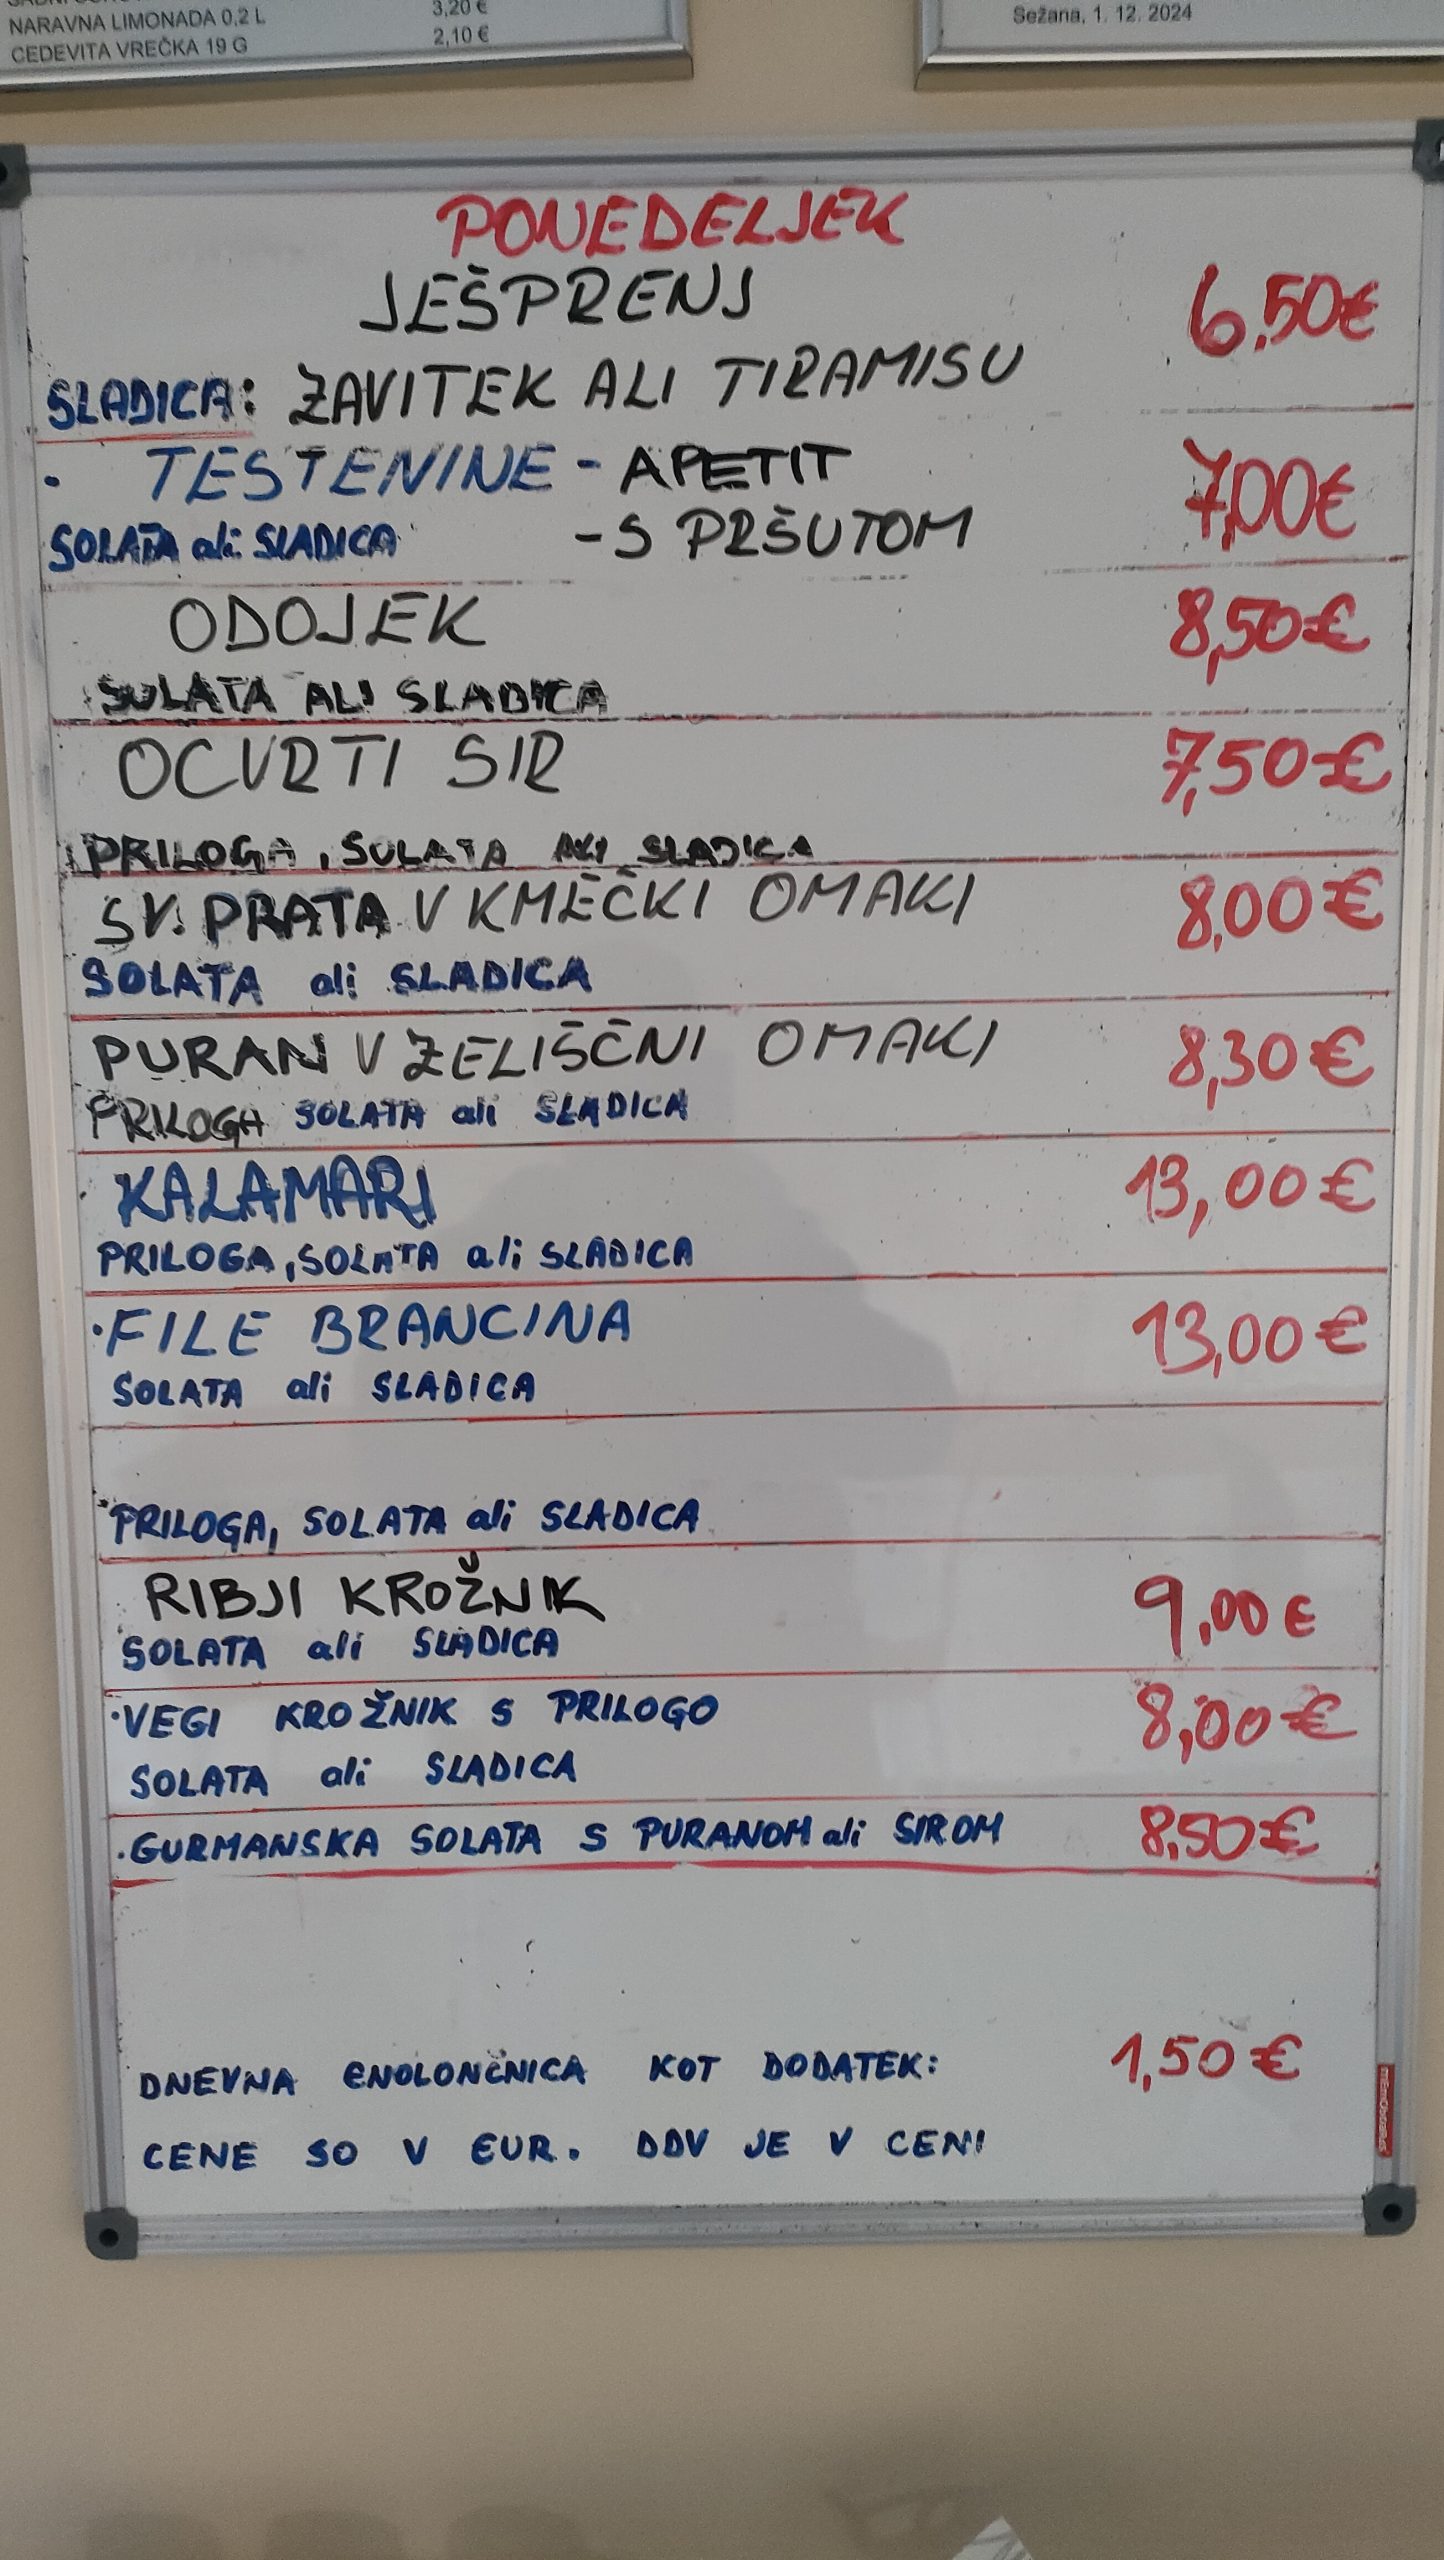 NARAVNA LIMONADA 0,2 L 3,20 €
CEDEVITA VREČKA 19 G 2,10 €
Sežana, 1. 12. 2024
PONEDELJEK
JEŠPRENJ 6.50€
SLADICA: ZAVITEK ALI TIRAMISU
· TESTENINE - APETIT 7,00€
SOLATA ali SLADICA - S PRŠUTOM
ODOJEK 8,50€
SOLATA ALI SLADICA
OCVRTI SIR 7,50€
PRILOGA, SOLATA ALI SLADICA
SV. PRATA V KMEČKI OMAKI 8,00€
SOLATA ali SLADICA
PURAN V ZELIŠČNI OMAKI 8,30€
PRILOGA SOLATA ali SLADICA
KALAMARI 13,00€
PRILOGA, SOLATA ali SLADICA
·FILE BRANCINA 13,00€
SOLATA ali SLADICA
PRILOGA, SOLATA ali SLADICA
RIBJI KROŽNIK 9,00€
SOLATA ali SLADICA
·VEGI KROŽNIK S PRILOGO 8,00€
SOLATA ali SLADICA
·GURMANSKA SOLATA S PURANOM ali SIROM 8,50€
DNEVNA ENOLONČNICA KOT DODATEK: 1,50€
CENE SO V EUR. DDV JE V CENI